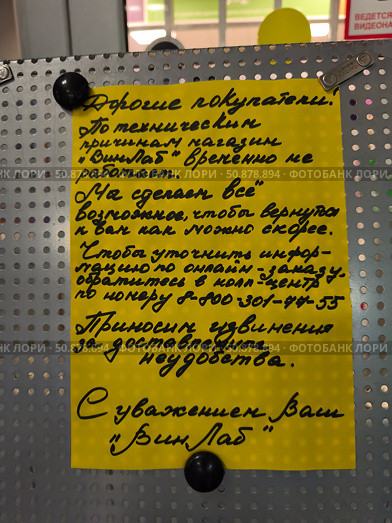 ВЕДЕТСЯ
Дорогие покупатели!
По техническим
причинам магазин
"ВинЛаб" временно не
работает.
Мы сделаем всё
возможное, чтобы вернуться
к вам как можно скорее.
Чтобы уточнить инфор-
мацию по онлайн-заказу,
обратитесь в колл-центр
по номеру 8-800-301-77-55
Приносим извинения
за доставленные
неудобства.
С уважением Ваш
"ВинЛаб"
50.878.894 · ФОТОБАНК ЛОРИ · 50.878.894 · ФОТОБАНК ЛОРИ
50.878.894 · ФОТОБАНК ЛОРИ · 50.878.894 · ФОТОБАНК ЛОРИ